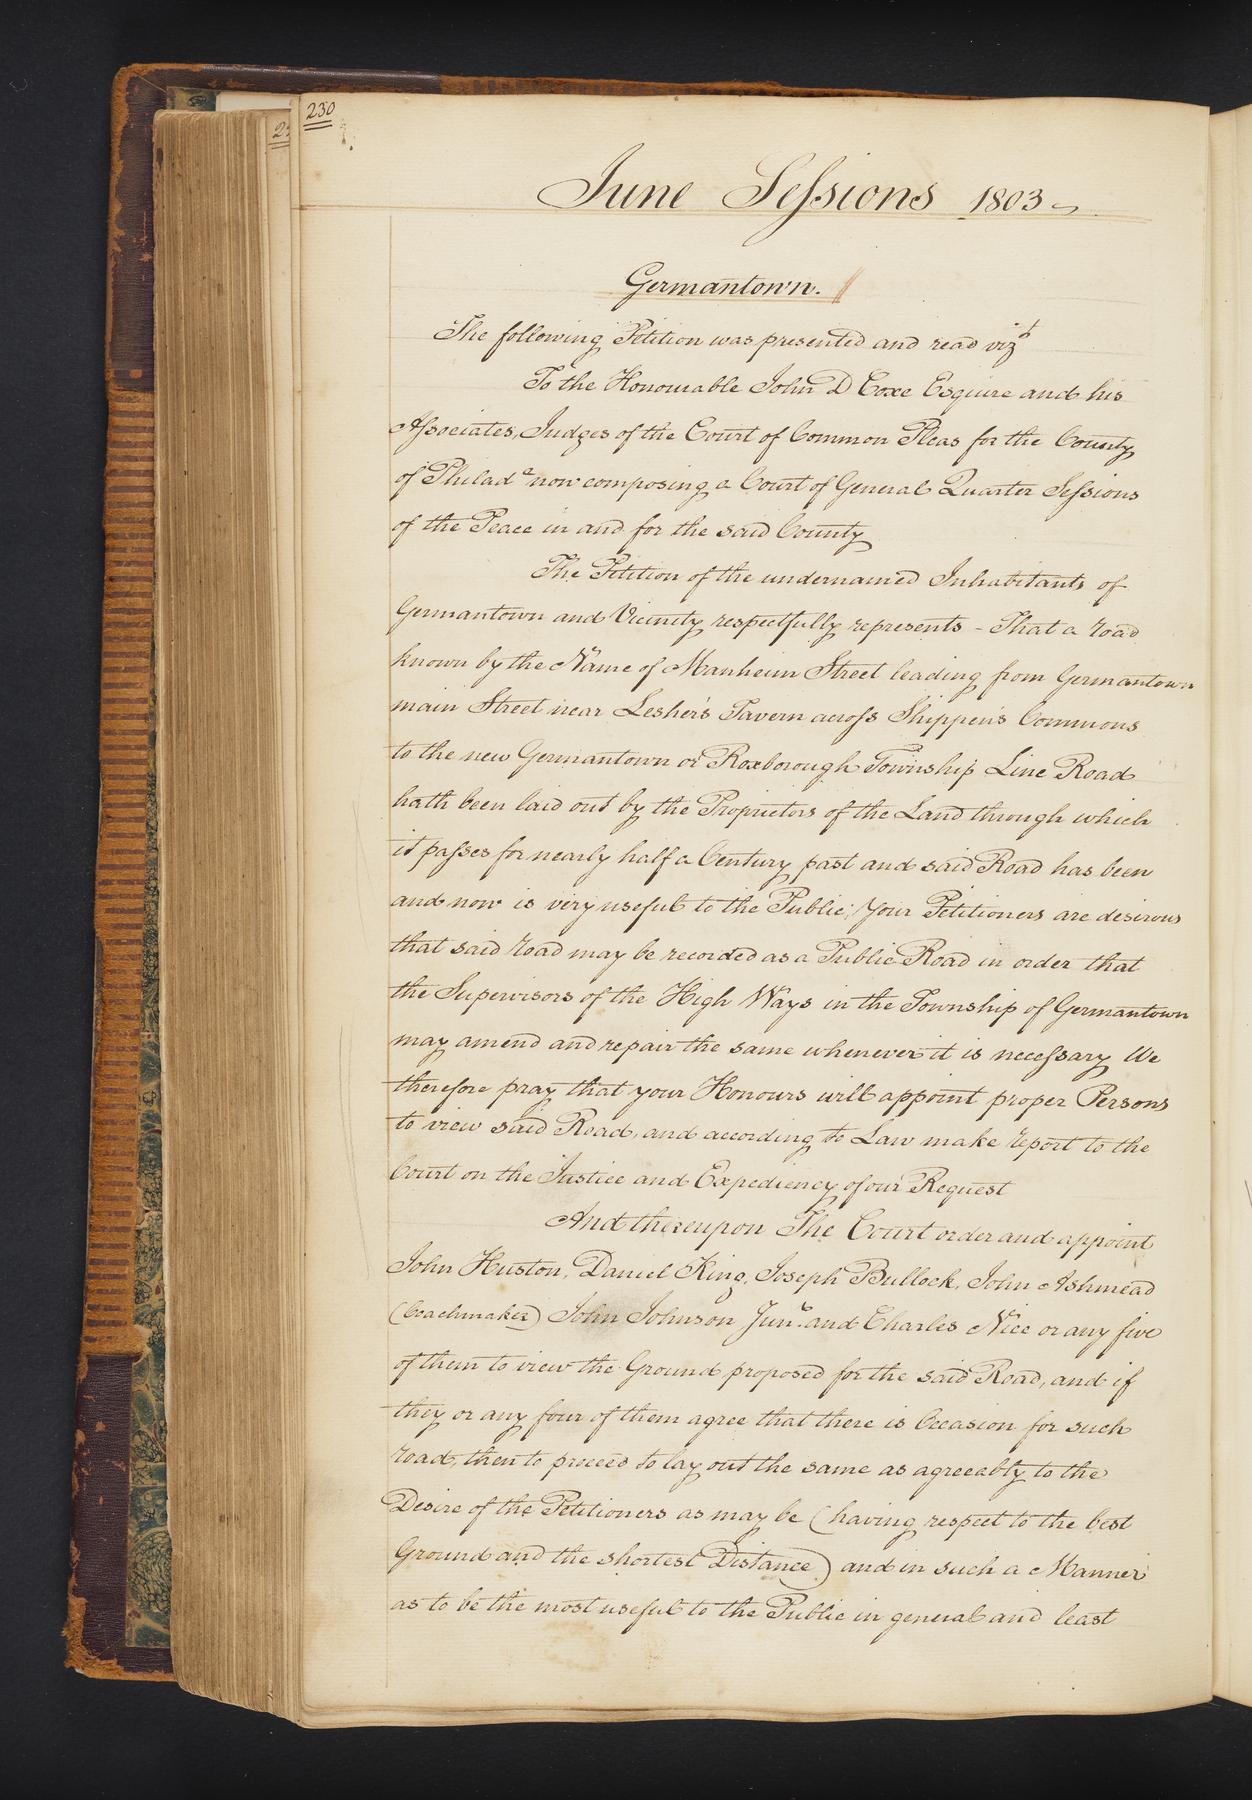 230
June Sessions 1803
Germantown.
The following Petition was presented and read vizt
To the Honourable John D Coxe Esquire and his
Associates, Judges of the Court of Common Pleas for the County
of Philada now composing a Court of General Quarter Sessions
of the Peace in and for the said County
The Petition of the undernamed Inhabitants of
Germantown and Vicinity respectfully represents - That a road
known by the Name of Manheim Street leading from Germantown
main Street near Lesher's Tavern across Shippen's Commons
to the new Germantown or Roxborough Township Line Road
hath been laid out by the Proprietors of the Land through which
it passes for nearly half a Century past and said Road has been
and now is very useful to the Public; Your Petitioners are desirous
that said road may be recorded as a Public Road in order that
the Supervisors of the High Ways in the Township of Germantown
may amend and repair the same whenever it is necessary We
therefore pray that your Honours will appoint proper Persons
to view said Road, and according to Law make report to the
Court on the Justice and Expediency of our Request
And thereupon The Court order and appoint
John Huston, Daniel King, Joseph Bullock, John Ashmead
(Coachmaker) John Johnson Junr. and Charles Nice or any five
of them to view the Ground proposed for the said Road, and if
they or any four of them agree that there is Occasion for such
road, then to proceed to lay out the same as agreeably to the
Desire of the Petitioners as may be (having respect to the best
Ground and the shortest Distance) and in such a Manner
as to be the most useful to the Public in general and least